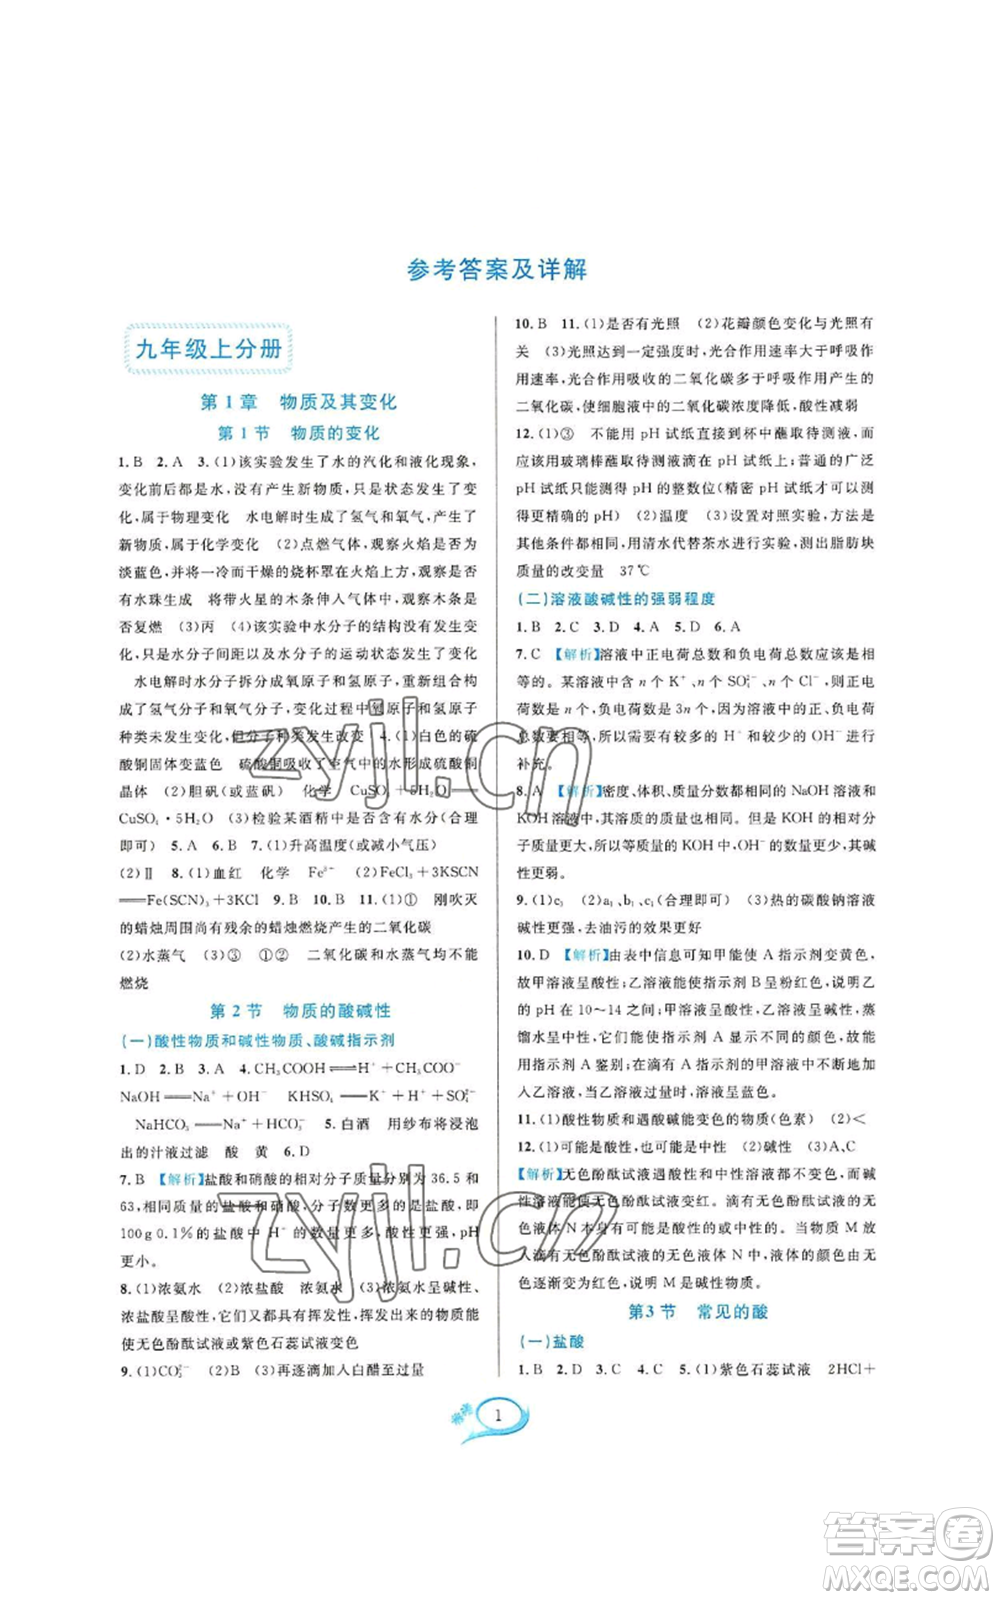 参考答案及详解
九年级上分册
第1章 物质及其变化
第1节 物质的变化
1.B 2.A 3.(1)该实验发生了水的汽化和液化现象,
变化前后都是水,没有产生新物质,只是状态发生了变
化,属于物理变化 水电解时生成了氢气和氧气,产生了
新物质,属于化学变化 (2)点燃气体,观察火焰是否为
淡蓝色,并将一个冷而干燥的烧杯罩在火焰上方,观察是否
有水珠生成 将带火星的木条伸入气体中,观察木条是
否复燃 (3)丙 (4)该实验中水分子的结构没有发生改
变,只是水分子间距以及分子的运动状态发生了变化
水电解时水分子拆分成氧原子和氢原子,重新组合成
了氢气分子和氧气分子,变化过程中氧原子和氢原子
种类未发生变化,但分子种类发生改变 4.(1)白色的硫
酸铜固体变蓝色 硫酸铜吸收了空气中的水形成硫酸铜
晶体 (2)胆矾(或蓝矾) 化学 CuSO₄+5H₂O══
CuSO₄·5H₂O (3)检验某酒精中是否含有水分(合理
即可) 5.A 6.B 7.(1)升高温度(或减小气压)
(2)Ⅱ 8.(1)血红 化学 Fe³⁺ (2)FeCl₃+3KSCN
══Fe(SCN)₃+3KCl 9.B 10.B 11.(1)① 刚吹灭
的蜡烛周围尚有残余的蜡烛燃烧产生的二氧化碳
(2)水蒸气 (3)③ ①② 二氧化碳和水蒸气均不能
燃烧
第2节 物质的酸碱性
(一)酸性物质和碱性物质、酸碱指示剂
1.D 2.B 3.A 4.CH₃COOH══H⁺+CH₃COO⁻
NaOH══Na⁺+OH⁻ KHSO₄══K⁺+H⁺+SO₄²⁻
NaHCO₃══Na⁺+HCO₃⁻ 5.白酒 用纱布将浸泡
出的汁液过滤 酸 黄 6.D
7.B 【解析】盐酸和硝酸的相对分子质量分别为36.5和
63,相同质量的盐酸和硝酸,分子数更多的是盐酸,即
100g 0.1%的盐酸中H⁺的数量更多,酸性更强,pH
更小。
8.(1)浓氨水 (2)浓盐酸 浓氨水 (3)浓氨水呈碱性、
浓盐酸呈酸性,它们又都具有挥发性,挥发出来的物质能
使无色酚酞试液或紫色石蕊试液变色
9.(1)CO₃²⁻ (2)B (3)再逐滴加入白醋至过量
10.B 11.(1)是否有光照 (2)花瓣颜色变化与光照有
关 (3)光照达到一定强度时,光合作用速率大于呼吸作
用速率,光合作用吸收的二氧化碳多于呼吸作用产生的
二氧化碳,使细胞液中二氧化碳浓度降低,酸性减弱
12.(1)③ 不能用pH试纸直接到杯中蘸取待测液,而
应该用玻璃棒蘸取待测液滴在pH试纸上;普通的广泛
pH试纸只能测得pH的整数位(精密pH试纸可以测
得更精确的pH) (2)温度 (3)设置对照实验,方法是
其他条件都相同,用清水代替茶水进行实验,测出脂肪块
质量的改变量 37℃
(二)溶液酸碱性的强弱程度
1.B 2.C 3.D 4.A 5.D 6.A
7.C 【解析】溶液中正电荷总数和负电荷总数应该是相
等的。某溶液中含有n个K⁺、n个SO₄²⁻、n个Cl⁻,正电
荷数是n个,负电荷数是3n个,因为溶液中的正、负电荷
总数要相等,所以需要有较多的H⁺和较少的OH⁻进行
补充。
8.A 【解析】密度、体积、质量分数都相同的NaOH溶液和
KOH溶液中,其溶质的质量也相同。但是KOH的相对分
子质量更大,所以等质量的KOH中,OH⁻的数量更少,其碱
性更弱。
9.(1)c₃ (2)a₁、b₁、c₁(合理即可) (3)热的碳酸钠溶液
碱性更强、去油污的效果更好
10.D 【解析】由表中信息可知甲能使A指示剂变黄色,
故甲溶液呈酸性;乙溶液能使A指示剂呈粉红色,说明乙
的pH在10～14之间;丙呈酸性,乙溶液呈碱性,蒸
馏水呈中性,它们能使指示剂A显示不同的颜色,故能
用指示剂A鉴别;在滴有A指示剂的甲溶液中逐滴加
入乙溶液,当乙溶液过量时,溶液呈粉红色。
11.(1)酸性物质和遇酸碱能变色的物质(色素) (2)<
12.(1)可能是酸性,也可能是中性 (2)碱性 (3)A、C
【解析】无色酚酞试液遇酸性和中性溶液都不变色,而碱
性溶液能使无色酚酞试液变红。滴有无色酚酞试液的无
色液体N本身有可能是酸性的或中性的。当物质M放
入滴有无色酚酞试液的无色液体N中,液体的颜色由无
色逐渐变为红色,说明M是碱性物质。
第3节 常见的酸
(一)盐酸
1.B 2.B 3.B 4.A 5.(1)紫色石蕊试液 2HCl+
1
zyjl.cn
zyjl.cn
答案卷
MXQE.COM